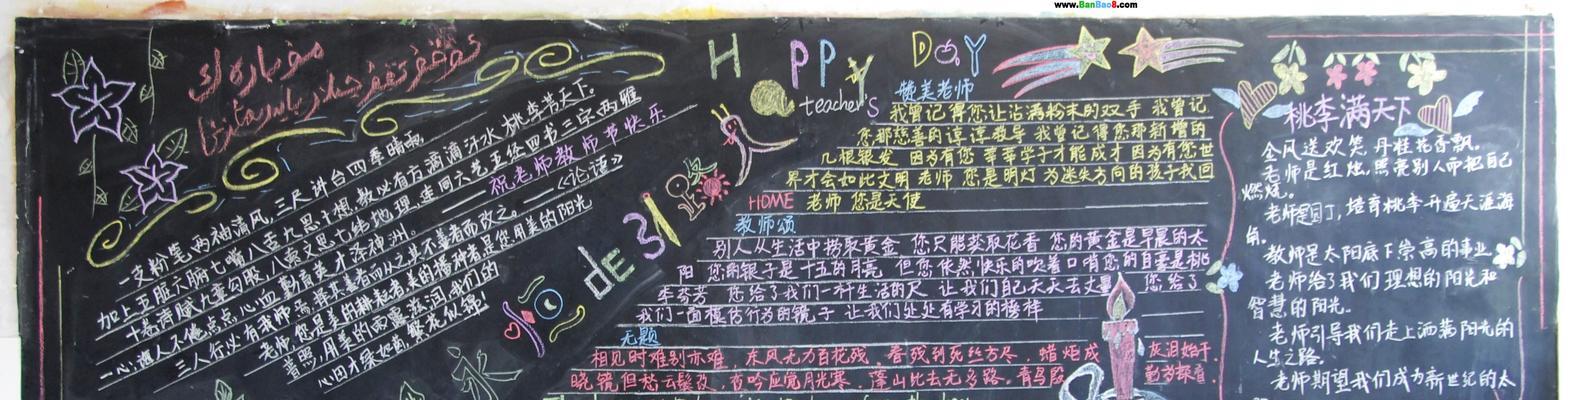 www.BanBao8.com
HAPPY DAY
teacher's
一支粉笔两袖清风,三尺讲台四季晴雨
加上五脏六腑七嘴八舌九思十想教必有方滴滴汗水桃李芳天下。
十卷诗赋九章勾股,八索文思七纬地理,连同六艺五经四书三字两雅
一心,诲人不倦点点心血勤育英才泽神洲。 祝老师教师节快乐
三人行必有我师焉,择其善者而从之其不善者而改之。——《论语》
老师 您是美的耕耘者美的播种者是您用美的阳光
普照,用美的雨露滋润,我们的
心田才 繁花似锦!
赞美老师
我曾记得您让沾满粉末的双手 我曾记
您那慈善的谆谆教导 我曾记得您那新增的
几根银发 因为有您 莘莘学子才能成才 因为有您世
界才会如此文明 老师 您是明灯 为迷失方向的孩子找回
HOME 老师 您是天使
教师颂
别人从生活中捞取黄金 您只能获取花香 您的黄金是早晨的太
阳 您的银子是十五的月亮 但您依然快乐的吹着口哨您的自豪是桃
李芬芳 您给了我们一杆生活的尺 让我们自己天天去丈量 您给了
我们一面模仿行为的镜子 让我们处处有学习的榜样
无题
相见时难别亦难,东风无力百花残。春 到死丝方尽,蜡炬成 灰泪始干.
晓镜但愁云鬓改,夜吟应觉月光寒。 山此去无多路,青鸟殷 勤为探看.
桃李满天下
金风送欢笑,丹桂花香飘。
老师是红烛,照亮别人而把自己
燃烧。
老师是园丁,培育桃李开遍天涯海
角。
教师是太阳底下崇高的事业
老师给了我们理想的阳光和
智慧的阳光。
老师引导我们走上洒满阳光的
人生之路。
老师期望我们成为新世纪的太